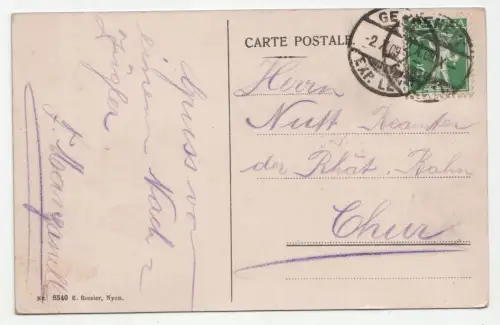 CARTE POSTALE.
GENÈVE
EXP. LE
Herrn
Nuft Beamter
der Rhät. Bahn
Chur
Gruss von
einem Nach-
zügler
Nr. 8540 E. Rossier, Nyon.